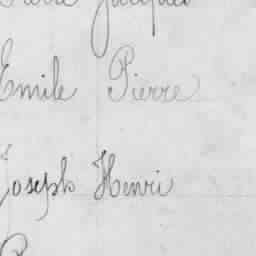 Pierre Jacques
Emile Pierre
Joseph Henri